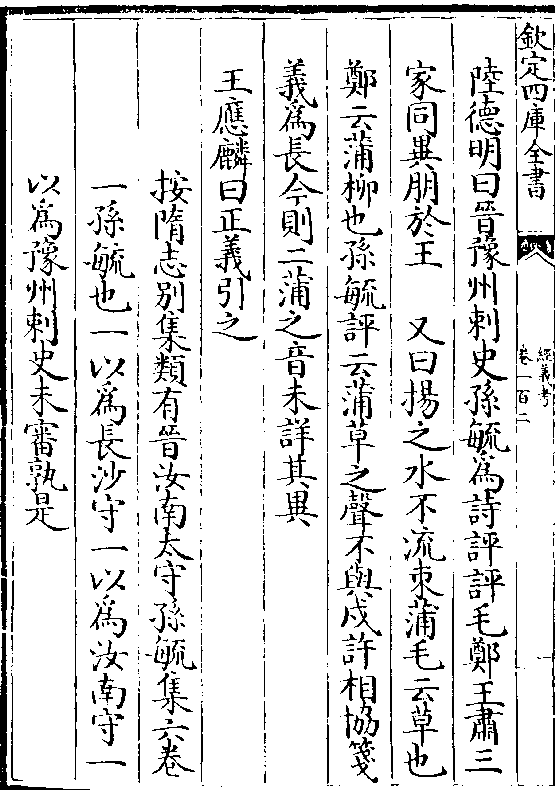 欽定四庫全書
經義考
卷一百二
陸德明曰晉豫州刺史孫毓爲詩評評毛鄭王肅三
家同異朋於王　又曰揚之水不流束蒲毛云草也
鄭云蒲柳也孫毓評云蒲草之聲不與戍許相協箋
義爲長今則二蒲之音未詳其異
王應麟曰正義引之
按隋志别集類有晉汝南太守孫毓集六卷
一孫毓也一以爲長沙守一以爲汝南守一
以爲豫州刺史未審孰是